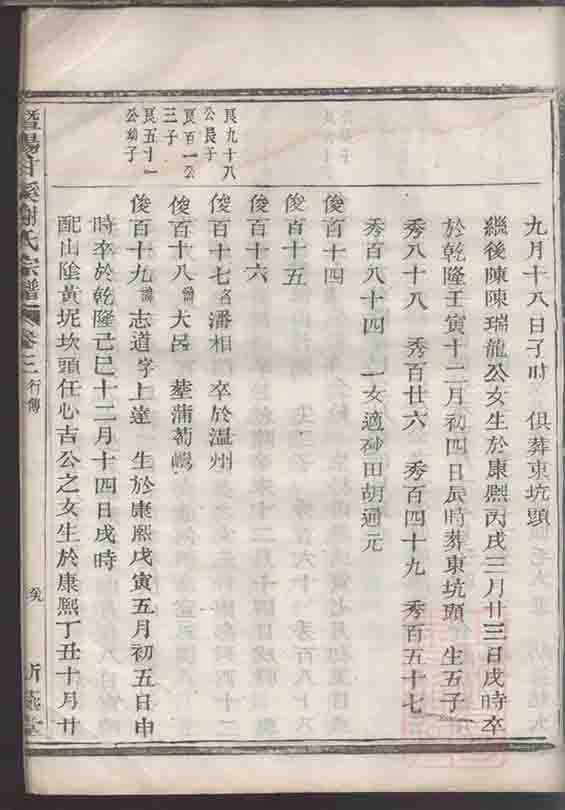 九月十八日子時 俱葬東坑頭
繼後陳陳瑞龍公女生於康熙丙戌三月廿三日戌時卒
於乾隆壬寅十二月初四日辰時葬東坑頭 生五子
秀八十八 秀百廿六 秀百四十九 秀百五十七
秀百八十四 一女適砂田胡通元
俊百十四
俊百十五
俊百十六
良九十八
公長子
俊百十七名潘相 卒於溫州
良百一公
三子
俊百十八諱大呂 塟蒲蔔嶼
良五十一
公幼子
俊百十九諱志道字上達 生於康熙戊寅五月初五日申
時卒於乾隆己巳十二月十四日戌時
配山陰黃坭坎頭任心古公之女生於康熙丁丑十月廿
暨陽 溪謝氏宗譜 卷三 行傳